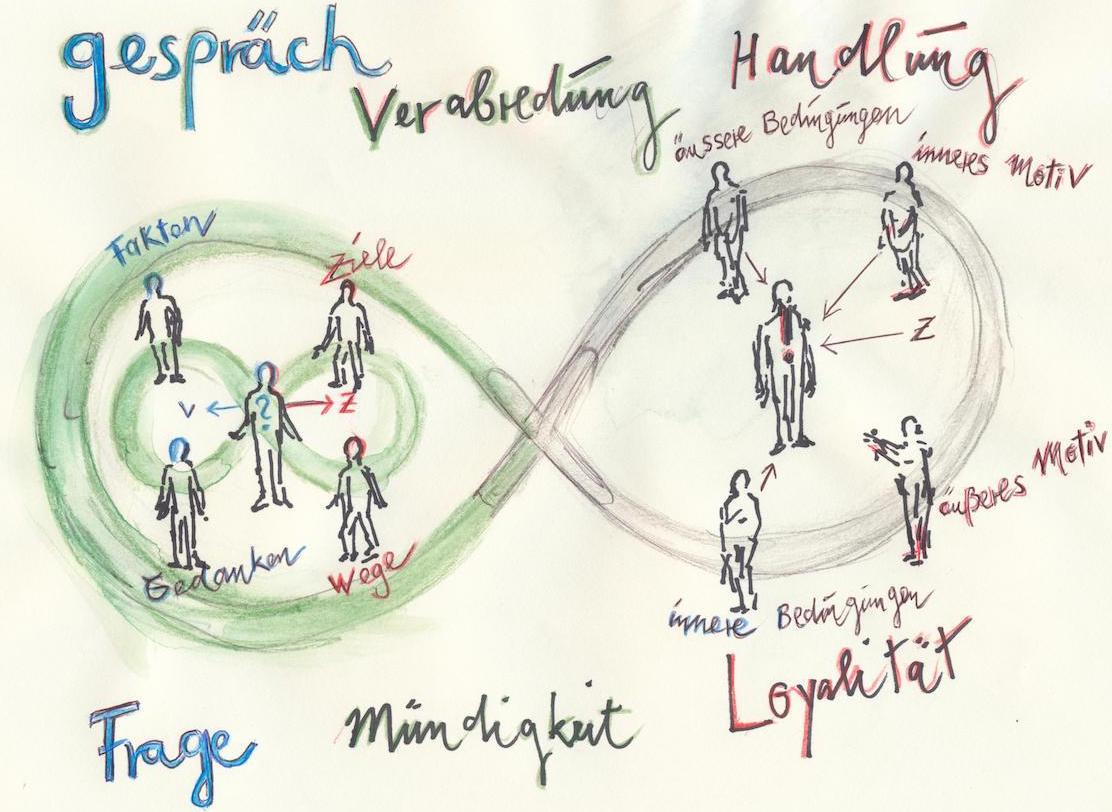 gespräch
Verabredung
Handlung
äussere Bedingungen
inneres Motiv
Fakten
Ziele
V
?
Z
Z
Gedanken
Wege
äußeres Motiv
innere Bedingungen
Loyalität
Frage
Mündigkeit